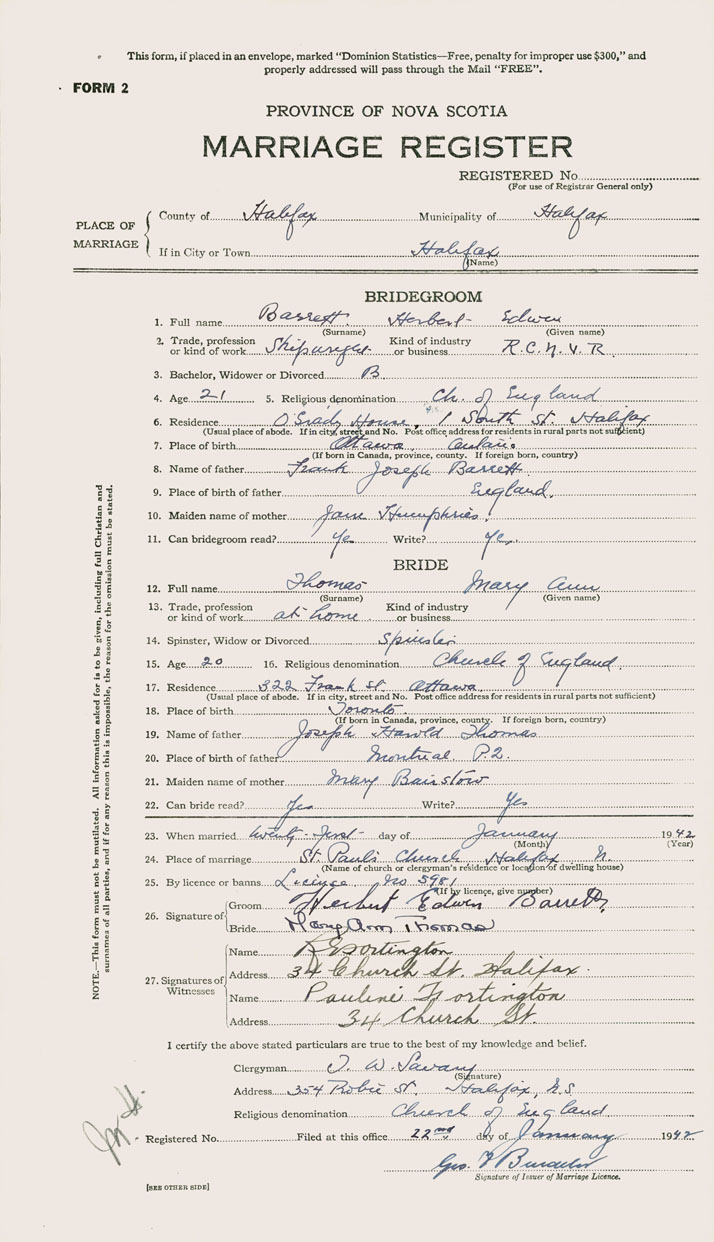 This form, if placed in an envelope, marked “Dominion Statistics—Free, penalty for improper use $300,” and
properly addressed will pass through the Mail “FREE”.
FORM 2
PROVINCE OF NOVA SCOTIA
MARRIAGE REGISTER
REGISTERED No.
(For use of Registrar General only)
PLACE OF MARRIAGE
County of Halifax Municipality of Halifax
If in City or Town Halifax
(Name)
BRIDEGROOM
1. Full name Barrett Herbert Edwin
(Surname) (Given name)
2. Trade, profession or kind of work Shipwright Kind of industry or business R.C.N.V.R
3. Bachelor, Widower or Divorced B
4. Age 21 5. Religious denomination Ch. of England
6. Residence House, 1 South St. Halifax
(Usual place of abode. If in city, street and No. Post office address for residents in rural parts not sufficient)
7. Place of birth Ottawa, Ontario
(If born in Canada, province, county. If foreign born, country)
8. Name of father Frank Joseph Barrett
9. Place of birth of father England.
10. Maiden name of mother Jane Humphries
11. Can bridegroom read? Yes Write? Yes
BRIDE
12. Full name Thomas Mary Ann
(Surname) (Given name)
13. Trade, profession or kind of work at home Kind of industry or business
14. Spinster, Widow or Divorced Spinster
15. Age 20 16. Religious denomination Church of England.
17. Residence 322 Frank St. Ottawa
(Usual place of abode. If in city, street and No. Post office address for residents in rural parts not sufficient)
18. Place of birth Toronto
(If born in Canada, province, county. If foreign born, country)
19. Name of father Joseph Harold Thomas
20. Place of birth of father Montreal P.Q.
21. Maiden name of mother Mary Bairstow
22. Can bride read? Yes Write? Yes
23. When married twenty-first day of January 1942
(Month) (Year)
24. Place of marriage St. Paul's Church Halifax N.
(Name of church or clergyman's residence or location of dwelling house)
25. By licence or banns Licence No 5981
(If by licence, give number)
26. Signature of
Groom Herbert Edwin Barrett
Bride Mary Ann Thomas
27. Signatures of Witnesses
Name
Address 34 Church St. Halifax.
Name Pauline Fortington
Address 34 Church St.
I certify the above stated particulars are true to the best of my knowledge and belief.
Clergyman T. W. Savary
(Signature)
Address 354 Robie St. Halifax, N.S.
Religious denomination Church of England
Registered No. Filed at this office 22nd day of January 1942
Geo.
Signature of Issuer of Marriage Licence.
[SEE OTHER SIDE]
NOTE.—This form must not be mutilated. All information asked for is to be given, including full Christian and
surnames of all parties, and if for any reason this is impossible, the reason for the omission must be stated.